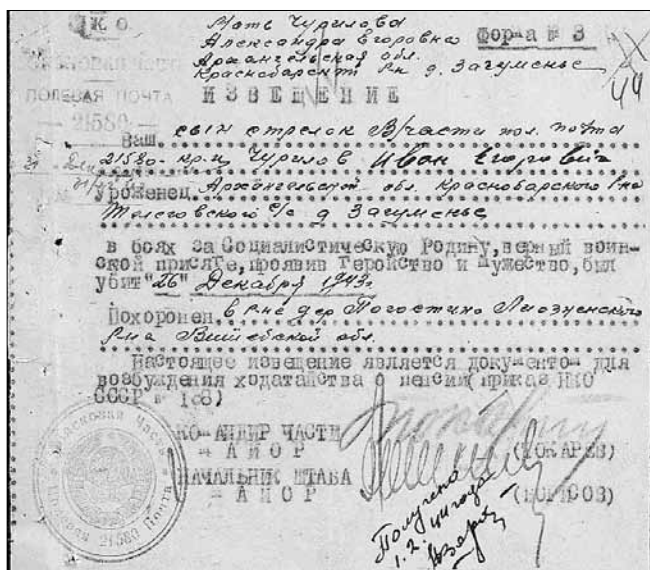 Н К О
Мать Чурилова
Александра Егоровна
Архангельская обл.
Красноборский Рн д. Загуменье
Форма № 3
44
ПОЛЕВАЯ ПОЧТА
— 21580 —
ИЗВЕЩЕНИЕ
Ваш сын стрелок В/части пол. почта
21580 кр-ц Чурилов Иван Егорович
Уроженец Архангельской обл. Красноборского Р-на
Телеговского с/с д Загуменье
в боях за Социалистическую Родину, верный воин-
ской присяге, проявив геройство и мужество, был
убит "26" Декабря 1943г
Похоронен в р-не дер Погостино Лиозненского
р-на Витебской обл.
Настоящее извещение является документом для
возбуждения ходатайства о пенсии (приказ НКО
СССР № 138)
КОМАНДИР ЧАСТИ
— МАЙОР (ТОКАРЕВ)
НАЧАЛЬНИК ШТАБА
— МАЙОР (БОРИСОВ)
Полевая Почта 21580
Получено
1.2. 44 года